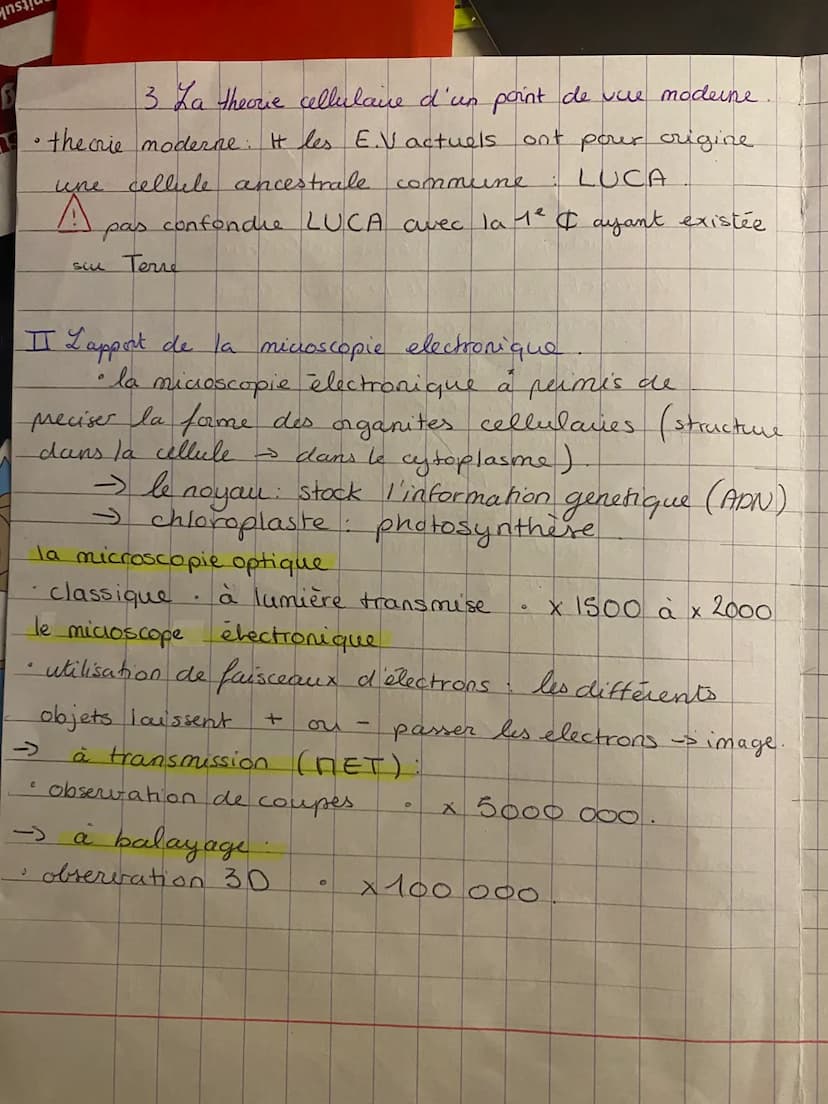 3 La theorie cellulaire d'un point de vue moderne.
• theorie moderne : tt les E.V actuels ont pour origine
une cellule ancestrale commune : LUCA.
⚠ pas confondre LUCA avec la 1e ₵ ayant existée
sur Terre
II L'apport de la microscopie electronique.
• la microscopie électronique à permis de
preciser la forme des organites cellulaires (structure
dans la cellule → dans le cytoplasme).
→ le noyau : stock l'information genetique (ADN)
→ chloroplaste : photosynthèse.
la microscopie optique
• classique • à lumière transmise • x 1500 à x 2000
le microscope électronique
• utilisation de faisceaux d'électrons : les différents
objets laissent + ou - passer les electrons → image.
→ à transmission (MET) :
• observation de coupes • x 5000 000.
→ à balayage :
• observation 3D • x 100 000.